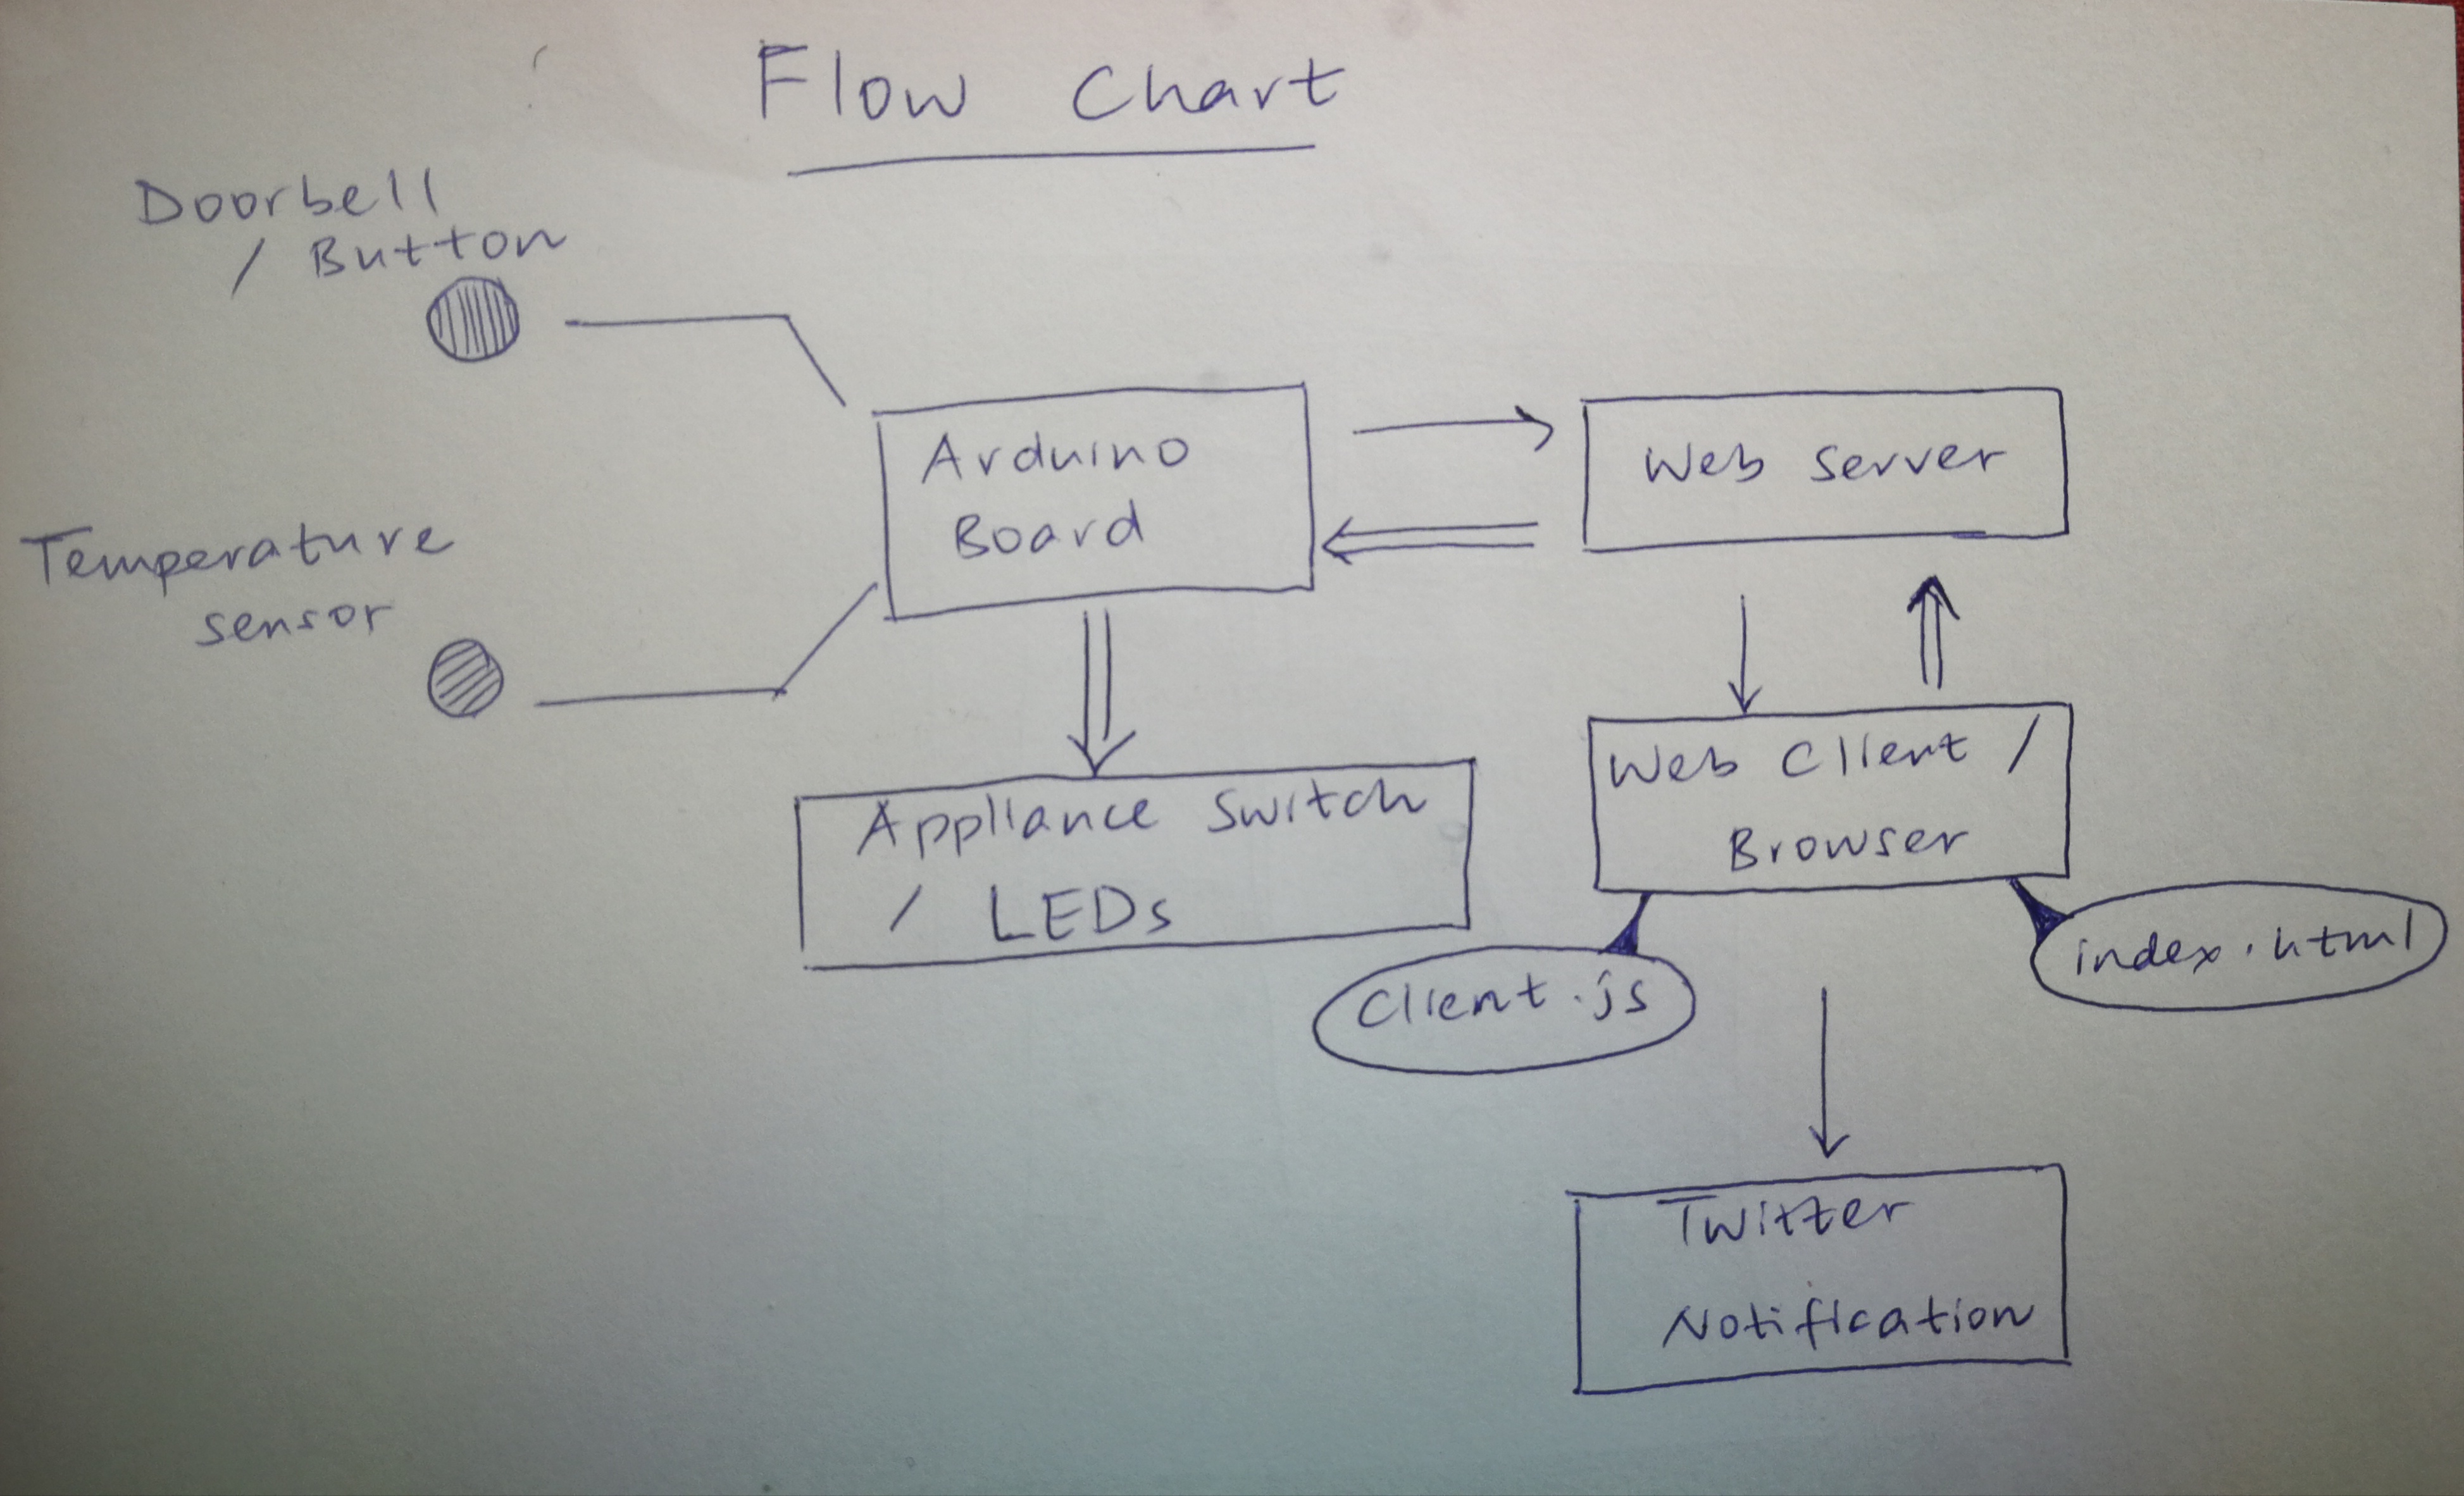 Flow Chart
Doorbell
/ Button
Temperature
sensor
Arduino
Board
Web Server
Appliance Switch
/ LEDs
Web Client /
Browser
Client.js
index.html
Twitter
Notification